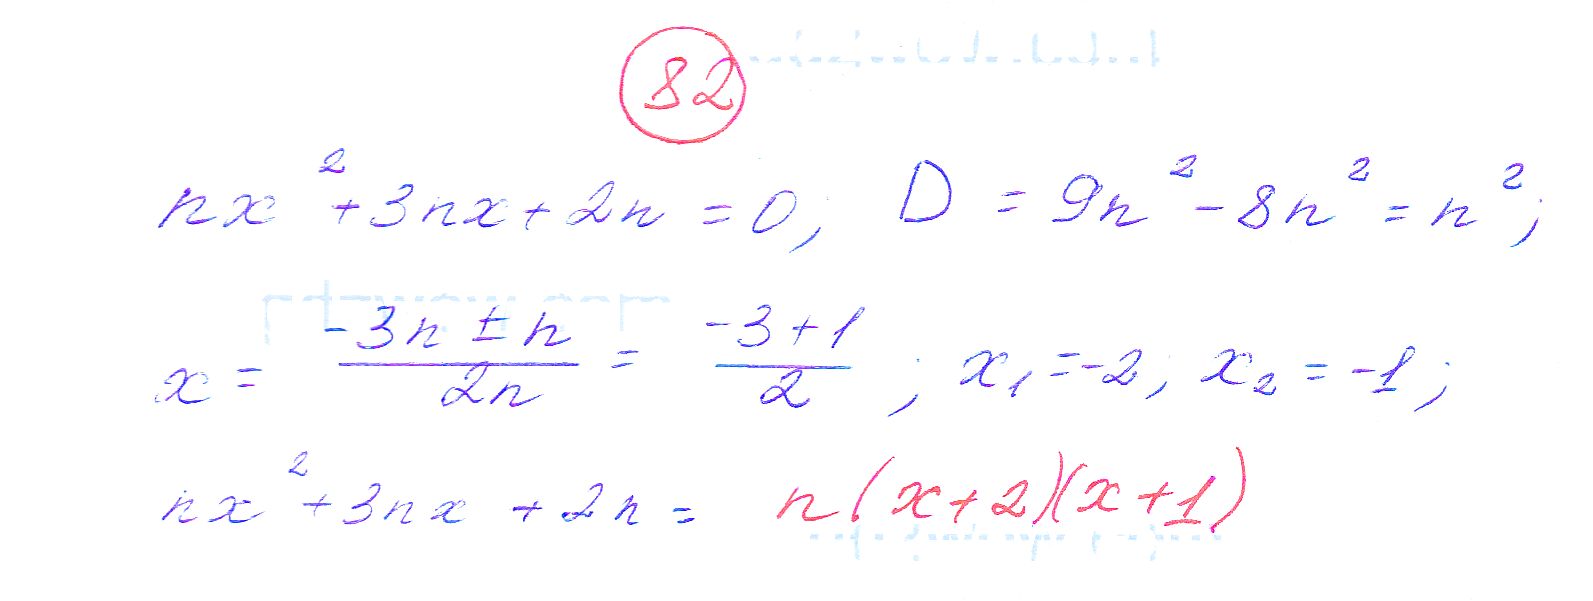 82
nx² + 3nx + 2n = 0; D = 9n² - 8n² = n²;
x = (-3n ± n)/(2n) = (-3+1)/2; x₁ = -2; x₂ = -1;
nx² + 3nx + 2n = n(x+2)(x+1)